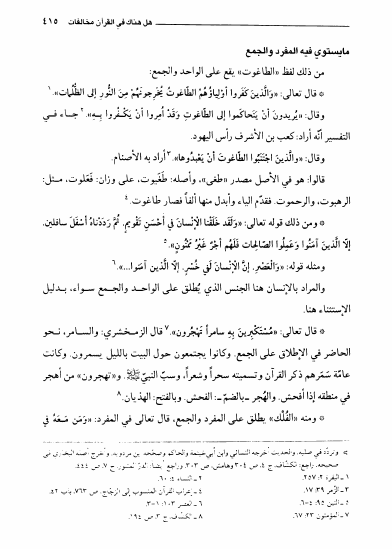 هل هناك في القرآن مخالفات ............................................................ ٤١٥
مايستوي فيه المفرد والجمع
من ذلك لفظ «الطاغوت» يقع على الواحد والجمع:
* قال تعالى: «وَالَّذينَ كَفَروا أوْلِياؤُهُمُ الطّاغوتُ يُخْرِجونَهُمْ مِنَ النُّورِ إلى الظُّلُماتِ».١
وقال: «يُريدونَ أنْ يَتَحاكَموا إلى الطّاغوتِ وَقَدْ أُمِروا أنْ يَكْفُروا بِهِ».٢ جاء في
التفسير أنّه أراد: كعب بن الأشرف رأس اليهود.
وقال: «والّذينَ اجْتَنَبُوا الطّاغوتَ أنْ يَعْبُدُوها».٣ أراد به الأصنام.
قالوا: هو في الأصل مصدر «طغى»، وأصله: طَغَيوت، على وزان: فَعَلوت، مثل:
الرهبوت، والرحموت. فقدّم الياء وأبدل منها ألفاً فصار طاغوت.٤
* ومن ذلك قوله تعالى: «وَلَقَد خَلَقْنا الإنْسانَ في أحْسَنِ تَقْويمٍ. ثُمَّ رَدَدْناهُ أسْفَلَ سافلينَ.
إلّا الَّذينَ آمَنُوا وَعَمِلُوا الصّالِحاتِ فَلَهُم أجْرٌ غَيْرُ مَمْنُونٍ».٥
ومثله قوله: «وَالْعَصْرِ. إنَّ الإنْسانَ لَفي خُسْرٍ. إلّا الَّذينَ آمَنوا...».٦
والمراد بالإنسان هنا الجنس الذي يُطلق على الواحد والجمع سواء، بدليل
الإستثناء هنا.
* قال تعالى: «مُسْتَكْبِرينَ بِهِ سامراً تَهْجُرون».٧ قال الزمخشري: والسامر، نحو
الحاضر في الإطلاق على الجمع. وكانوا يجتمعون حول البيت بالليل يسمرون. وكانت
عامّة سَمَرهم ذكر القرآن وتسميته سحراً وشعراً، وسبّ النبيّ ﷺ. و«تهجرون» من أهجر
في منطقه إذا أفحش. والهُجر ـ بالضمّ ـ: الفحش. وبالفتح: الهذيان.٨
* ومنه «الفُلْك» يطلق على المفرد والجمع، قال تعالى في المفرد: «وَمَن مَعَهُ في
صحيحه. راجع: الكشّاف، ج ٤، ص ٣٠٤ وهامش، ص ٣٠٣. وراجع أيضاً: الدرّ المنثور، ج ٧، ص ٤٤٤.
١ ـ البقرة ٢: ٢٥٧.
٢ ـ النساء ٤: ٦٠.
٣ ـ الزمر ٣٩: ١٧.
٤ ـ إعراب القرآن المنسوب إلى الزجّاج، ص ٧٦٣، باب ٤٢.
٥ ـ التين ٩٥: ٤-٦.
٦ ـ العصر ١٠٣: ١-٣.
٧ ـ المؤمنون ٢٣: ٦٧.
٨ ـ الكشّاف، ج ٣، ص ١٩٤.